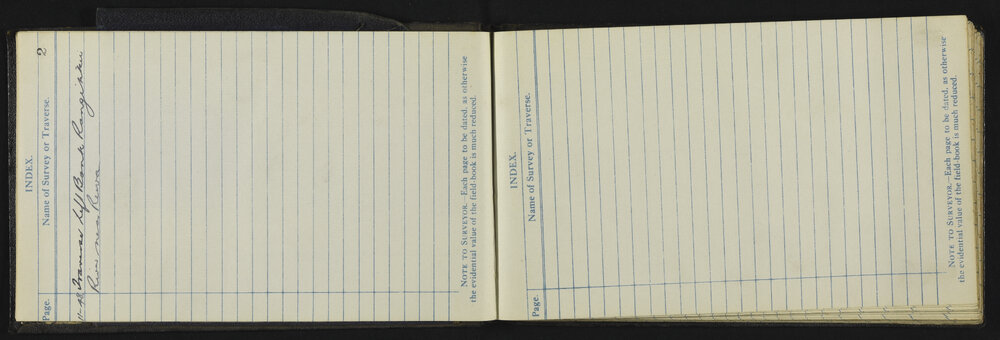 2
INDEX.
Page. Name of Survey or Traverse.
Traverse Left Bank Rangitikei
River near Rewa
NOTE TO SURVEYOR.—Each page to be dated, as otherwise
the evidential value of the field-book is much reduced.
INDEX.
Page. Name of Survey or Traverse.
NOTE TO SURVEYOR.—Each page to be dated, as otherwise
the evidential value of the field-book is much reduced.